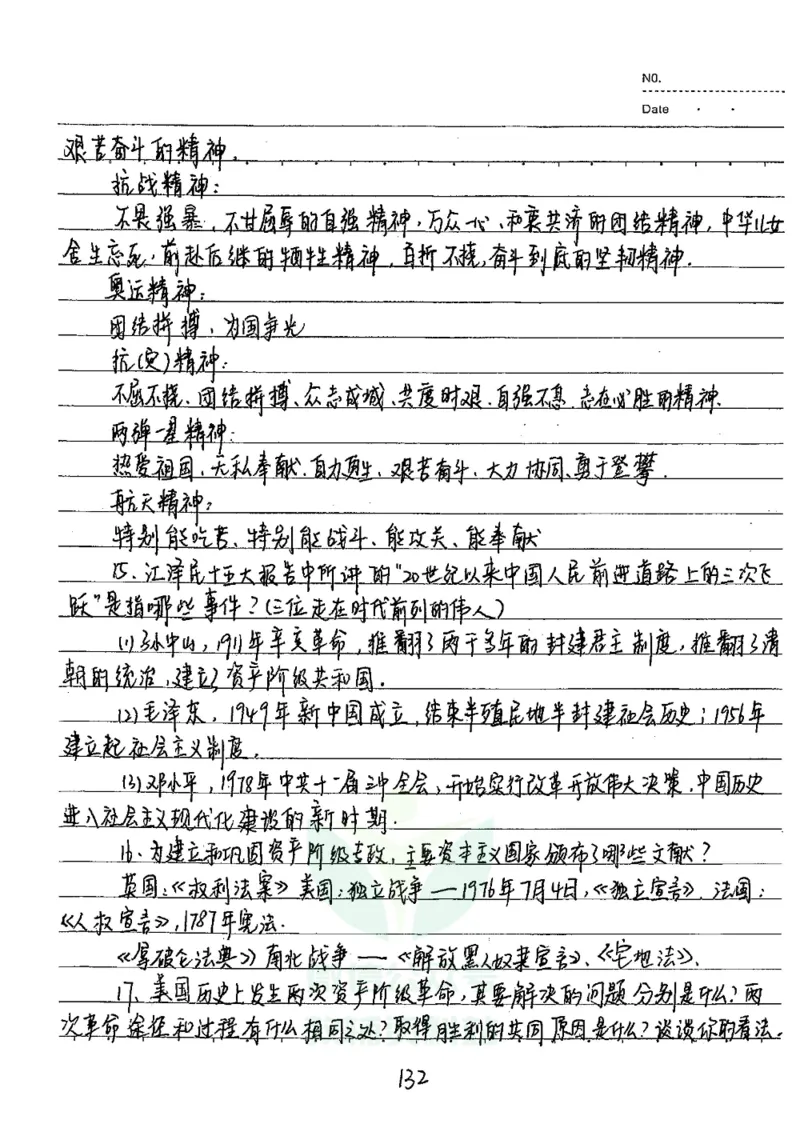 NO.
Date
艰苦奋斗的精神.
抗战精神:
不畏强暴、不甘屈辱的自强精神,万众一心、和衷共济的团结精神,中华儿女
舍生忘死,前赴后继的牺牲精神,百折不挠,奋斗到底的坚韧精神.
奥运精神:
团结拼搏、为国争光
抗(灾)精神:
不屈不挠、团结拼搏、众志成城、共度时艰、自强不息、志在必胜的精神.
两弹一星精神:
热爱祖国、无私奉献、自力更生、艰苦奋斗、大力协同、勇于登攀.
航天精神:
特别能吃苦、特别能战斗、能攻关、能奉献
15、江泽民十五大报告中所讲的"20世纪以来中国人民前进道路上的三次飞
跃"是指哪些事件?(三位走在时代前列的伟人)
(1)孙中山,1911年辛亥革命,推翻了两千多年的封建君主制度,推翻了清
朝的统治,建立了资产阶级共和国.
(2)毛泽东,1949年新中国成立,结束半殖民地半封建社会历史;1956年
建立起社会主义制度.
(3)邓小平,1978年中共十一届三中全会,开始实行改革开放伟大决策,中国历史
进入社会主义现代化建设的新时期.
16、为建立和巩固资产阶级专政,主要资本主义国家颁布了哪些文献?
英国:《权利法案》美国:独立战争—1976年7月4日,《独立宣言》.法国:
《人权宣言》,1787年宪法.
《拿破仑法典》南北战争—《解放黑人奴隶宣言》、《宅地法》.
17、美国历史上发生两次资产阶级革命,其要解决的问题分别是什么?两
次革命途径和过程有什么相同之处?取得胜利的共同原因是什么?谈谈你的看法.
132